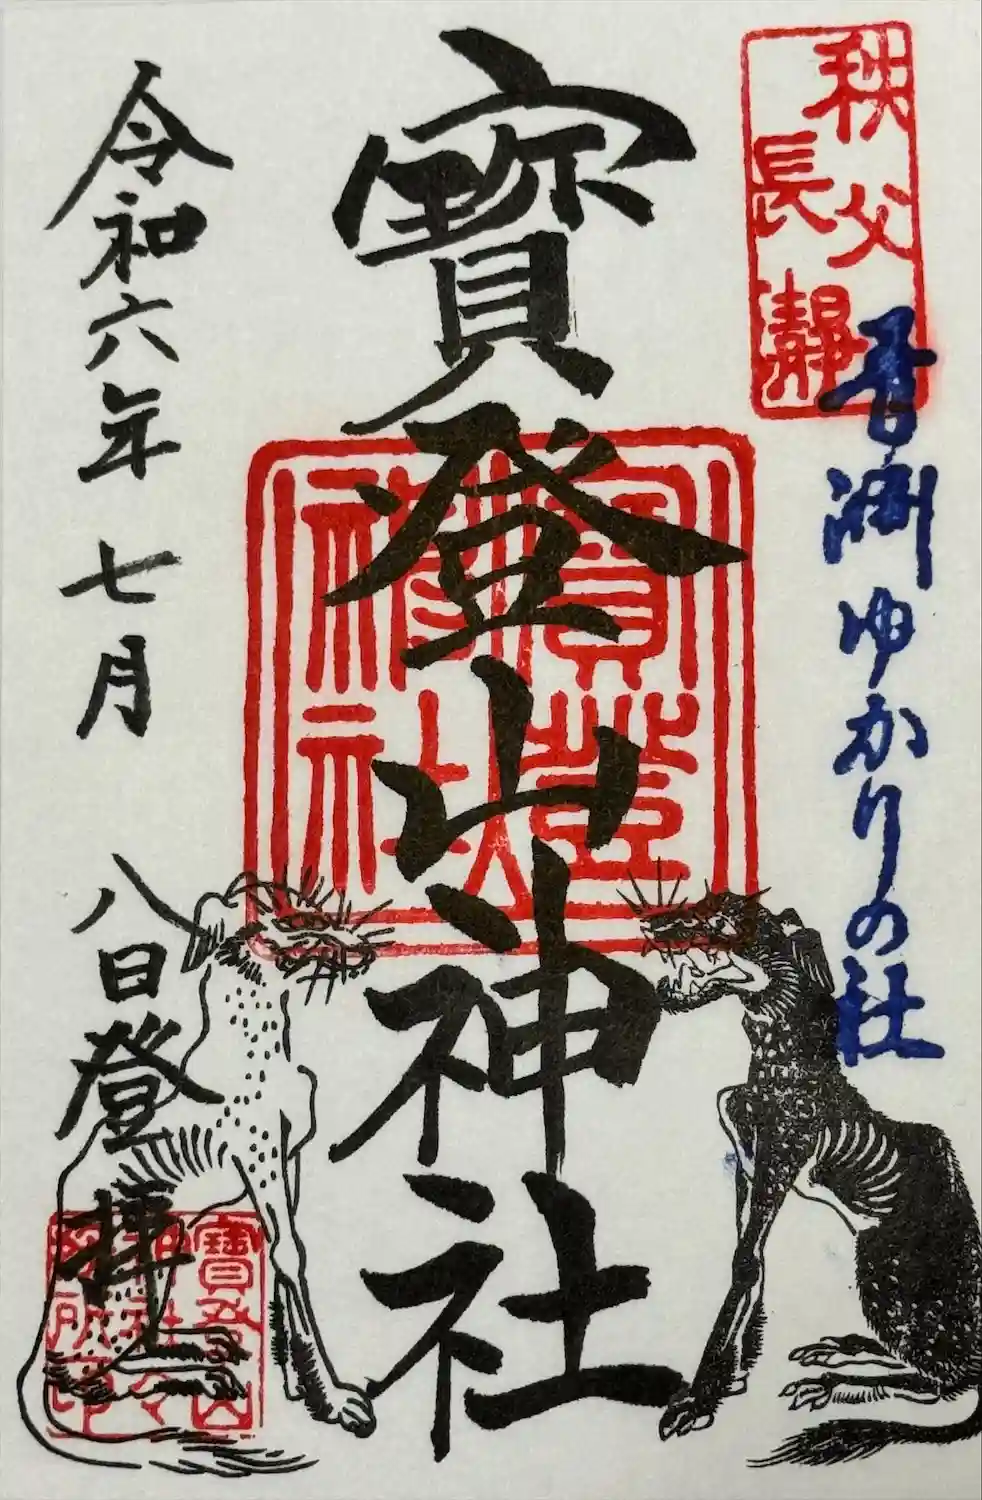 秩父
長瀞
吾渊ゆかりの社
寳登山神社
寳登
山神社
令和六年七月八日登拝